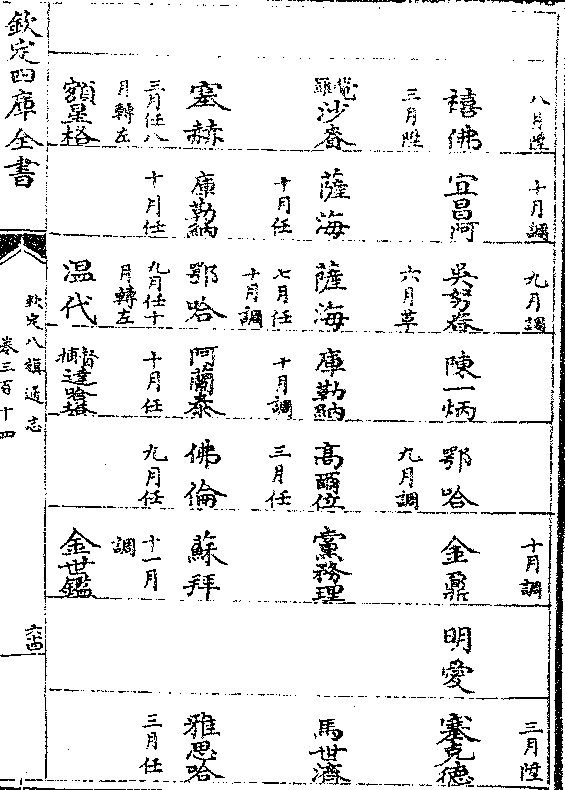 八月陞
十月調
九月調
十月調
三月陞
禧佛
宜昌阿
吳努春
陳一炳
鄂哈
金鼐
明愛
塞克德
三月陞
六月革
九月調
覺羅沙賚
薩海
薩海
庫勒納
高爾位
黨務理
馬世濟
十月任
七月任
十月調
十月調
三月任
塞赫
庫勒納
鄂哈
阿蘭泰
佛倫
蘇拜
雅思哈
三月任八
月轉左
十月任
九月任十
月轉左
十月任
九月任
十一月
調
三月任
額星格
温代
督捕達哈塔
金世鑑
欽定四庫全書
欽定八旗通志
卷三百十四